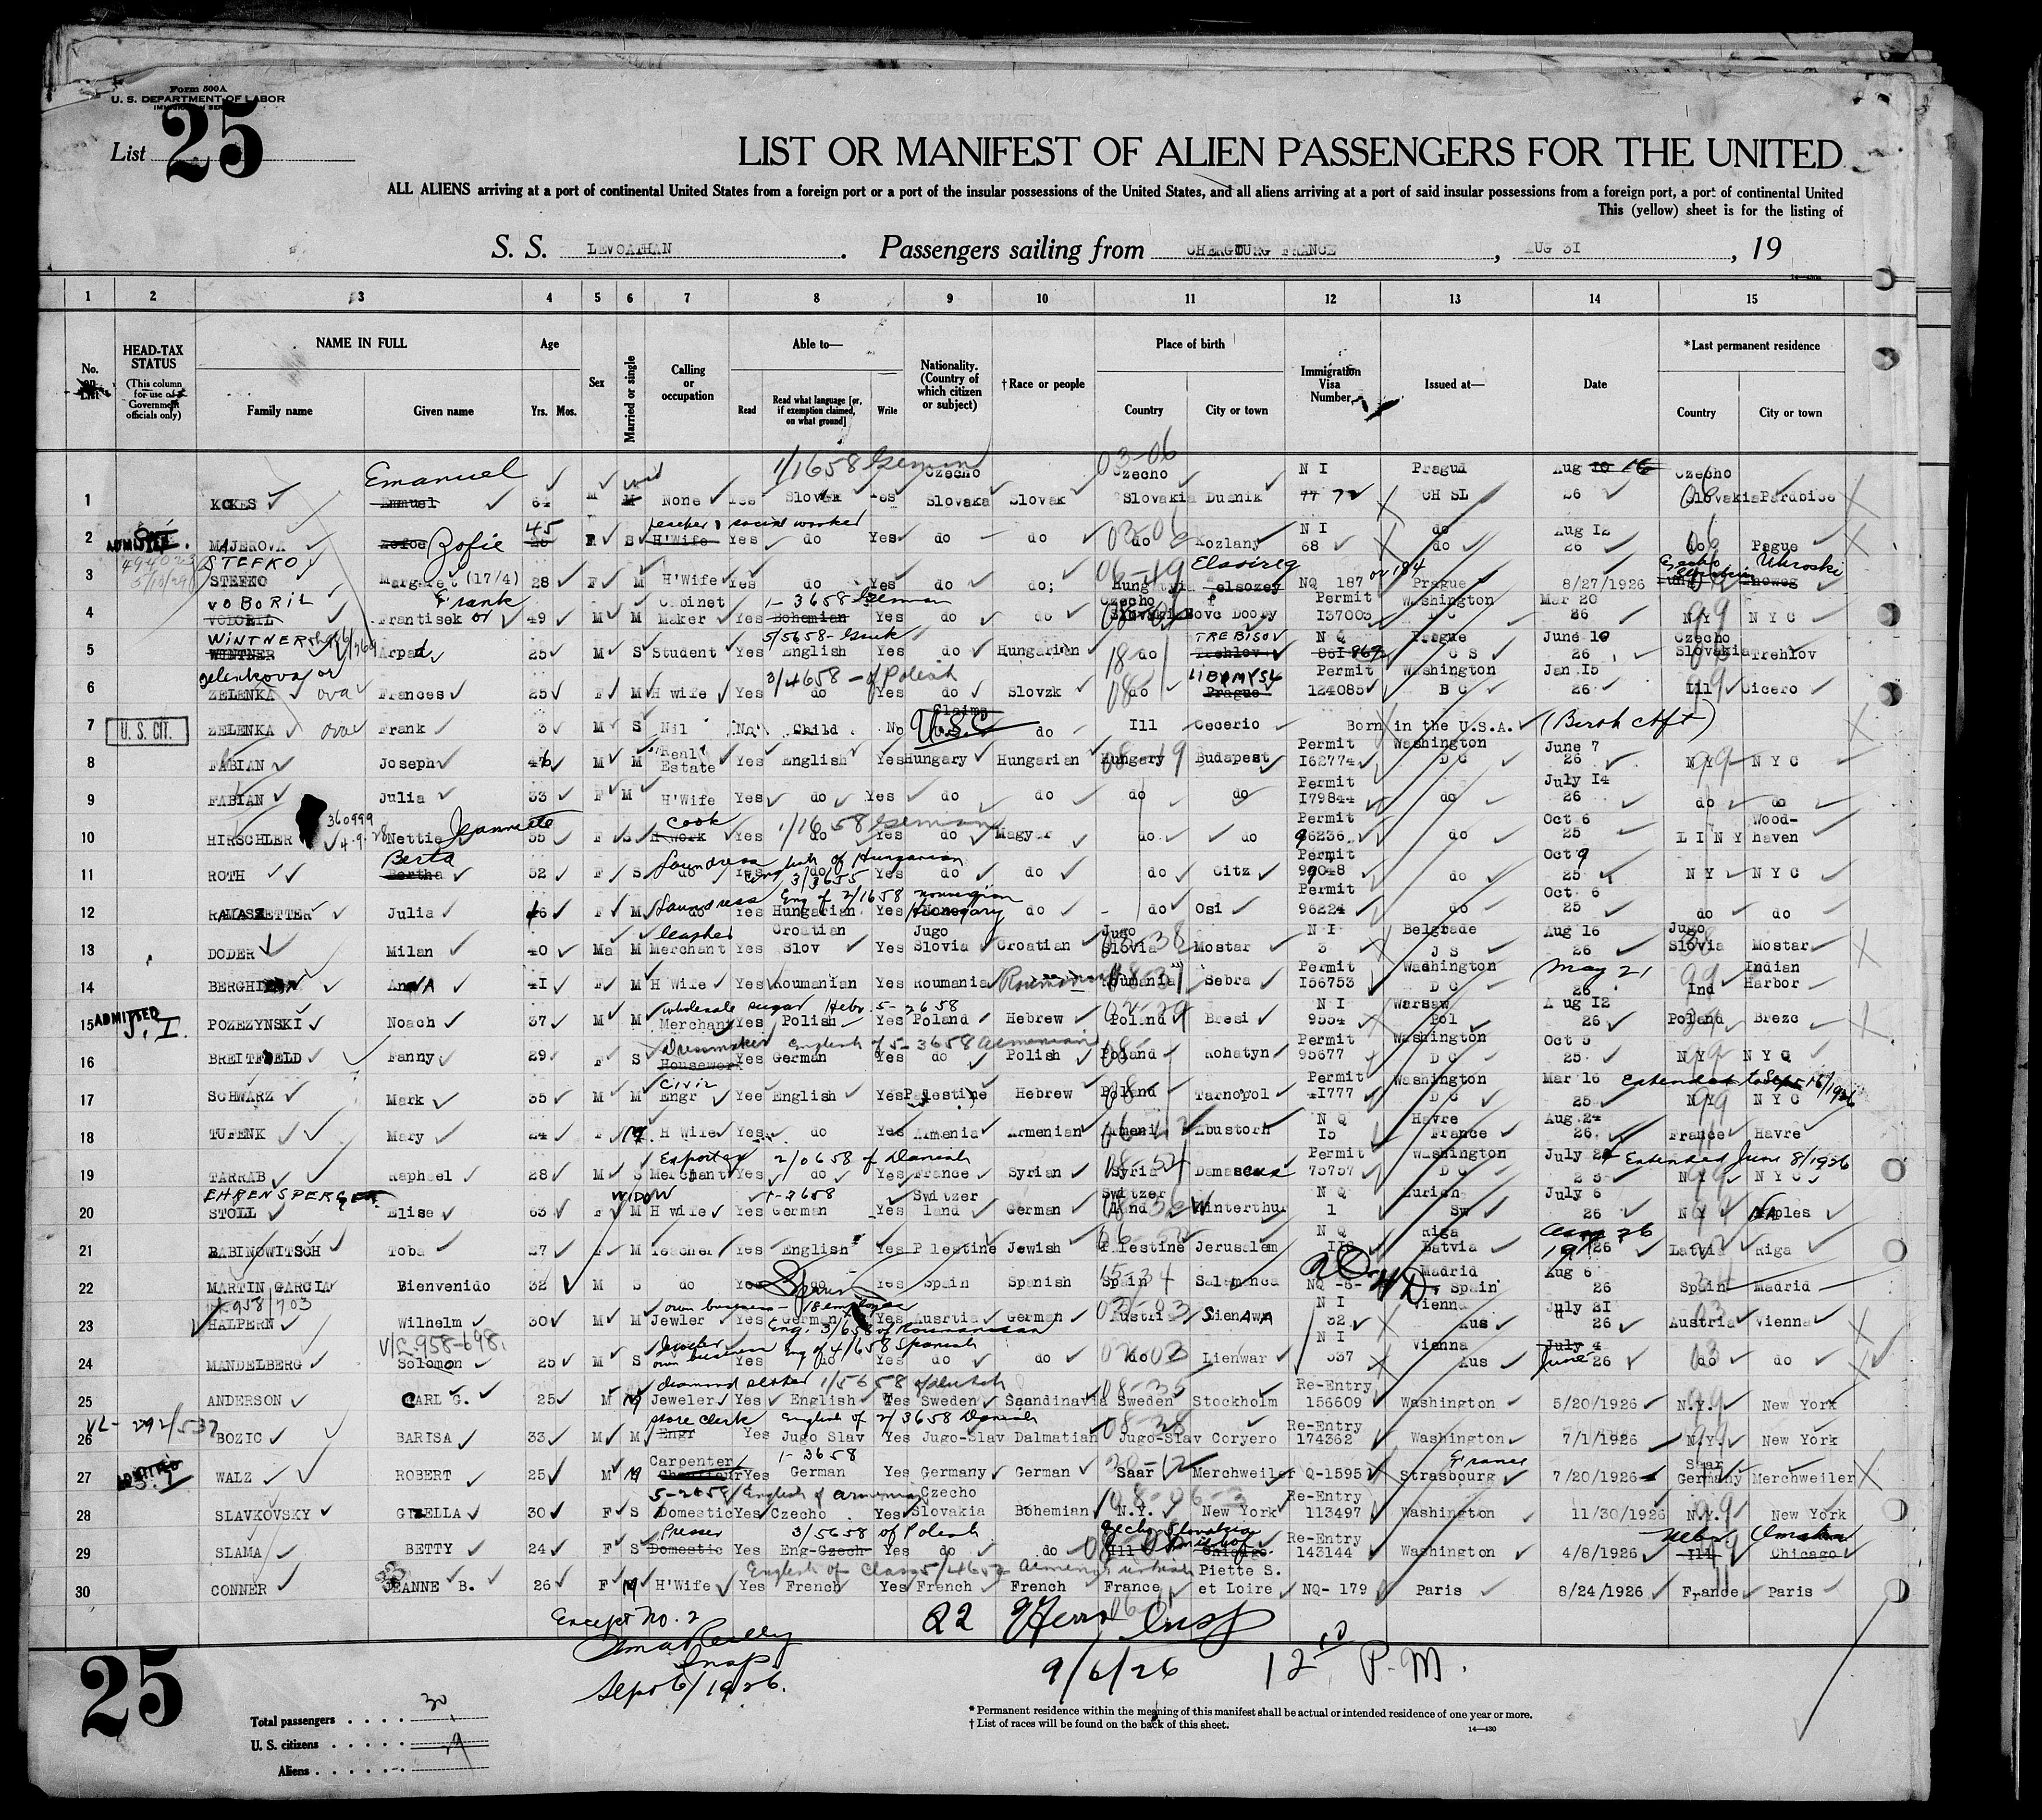 Form 500A
U. S. DEPARTMENT OF LABOR
List 25
LIST OR MANIFEST OF ALIEN PASSENGERS FOR THE UNITED
ALL ALIENS arriving at a port of continental United States from a foreign port or a port of the insular possessions of the United States, and all aliens arriving at a port of said insular possessions from a foreign port, a port of continental United
This (yellow) sheet is for the listing of
S. S. LEVOATHAN . Passengers sailing from CHERGOURG FRANCE , AUG 31 , 19
1 2 3 4 5 6 7 8 9 10 11 12 13 14 15
No. on List
HEAD-TAX STATUS (This column for use of Government officials only)
NAME IN FULL Family name Given name
Age Yrs. Mos.
Sex
Married or single
Calling or occupation
Able to— Read Read what language [or, if exemption claimed, on what ground] Write
Nationality. (Country of which citizen or subject)
†Race or people
Place of birth Country City or town
Immigration Visa Number
Issued at—
Date
*Last permanent residence Country City or town
Emanuel 1/1658 German Czecho 03-06 Czecho N I Pragud Aug 10 16 Czecho
1 KOKES Emnuel 64 M M None Yes Slovak Yes Slovaka Slovak Slovakia Dusnik 77 72 CH SL 26 Slovakia Pardbice
45 teacher & social worker N I do Aug 12
2 ADMITTED MAJEROVA Zofie F S H'Wife Yes do Yes do do do Kozlany 68 do 26 do Pague
STEFKO
3 STEFKO Margaret (17/4) 28 F M H'Wife Yes do Yes do do; NQ 187 Prague 8/27/1926
VOBORIL Frank Cabinet 1-3658 German Czecho Permit Washington Mar 20
4 VOBORIL Frantisek or 49 M M Maker Yes Bohemian Yes do do Slovakia I37003 D C 26 N Y N Y C
WINTNER 5/5658- TREBISOV N Q Prague June 10 Czecho
5 WINTNER Arpad 25 M S Student Yes English Yes do Hungarian do Trehlov 861 869 C S 26 Slovakia Trehlov
Zelenkova or 3/4658 - of Polish LIBOMYSL Permit Washington Jan I5
6 ZELENKA ova Frances 25 F M H wife Yes do Yes do Slovzk do Prague 124085 B C 26 Ill Cicero
Claims
7 U. S. CIT. ZELENKA ova Frank 3 M S Nil No Child No U.S.C do Ill Cecerio Born in the U.S.A. (Birth Ctft)
Real Permit Washington June 7
8 FABIAN Joseph 46 M M Estate Yes English Yes Hungary Hungarian Hungary Budapest I62774 D C 26 N Y N Y C
Permit July I4
9 FABIAN Julia 33 F M H'Wife Yes do Yes do do do do I79844 do 26 do do
360999 Jeannette Cook 1/1658 German Permit Oct 6 Wood-
10 HIRSCHLER 4-9-28 Nettie 55 F S H work Yes do Yes do Magyar do do 96236 do 25 L I N Y haven
Berta Laundress English of Hungarian Permit Oct 9
11 ROTH Bertha 52 F S do Yes do Yes do do do Citz 99048 do 25 N Y N Y C
3/3655 Permit Oct. 6
12 Julia 46 F M Laundress do Yes Hungarian Yes do do Osi 96224 do 25 do do
Croatian Jugo Jugo 38 N I Belgrade Aug 16 Jugo
13 DODER Milan 40 Ma M Merchant Yes Slov Yes Slovia Croatian Slovia Mostar 3 J S 26 Slovia Mostar
Permit Washington May 21 Indian
14 41 F M H Wife Yes Roumanian Yes Roumania Roumania Sebra I56753 D C 26 Ind Harbor
wholesale sugar Hebr. 5-2658 N I Warsaw Aug I2
15 ADMITTED S. I. POZEZYNSKI Noach 37 M M Merchant Yes Polish Yes Poland Hebrew Poland Bresi 9554 Pol 26 Poland Brezc
Dressmaker English of 5-3658 Armenian Permit Washington Oct 5
16 BREITFELD Fanny 29 F S Housework Yes German Yes do Polish Poland Rohatyn 95677 D C 25 N Y N Y C
Civil Permit Washington Mar 16 Extended to Sept 16/1926
17 SCHWARZ Mark 35 M M Engr Yee English Yes Palestine Hebrew Poland Tarnopol 41777 D C 25 N Y N Y C
N Q Havre Aug 24
18 TUFENK Mary 24 F M H Wife Yes do Yes Armenia Armenian Armenia Abustorh I5 France 26 France Havre
Exporter 2/0658 of Danish Permit Washington July 2 Extended June 8/1926
19 TARRAB Raphael 28 M S Merchant Yes do Yes France Syrian Syria Damascus 75757 D C 25 N Y N Y C
EHRENSPERGER WIDOW 1-3658 Switzer Switzer N Q Zurich July 6
20 STOLL Elise 63 F M H wife Yes German Yes land German land Winterthur 1 Sw 26 N Y Naples
N Q Riga Aug 26
21 RABINOWITSCH Toba 27 F M Teacher Yes English Yes Palestine Jewish Palestine Jerusalem Latvia 19/26 Latvia Riga
15-34 Madrid Aug 6
22 MARTIN GARCIA Bienvenido 32 M S do Yes do Yes Spain Spanish Spain Salamanca NQ -5- Spain 26 Spain Madrid
958/703 own business - 18 employees 03-03 N I Vienna July 21
23 HALPERN Wilhelm 30 M M Jewler Yes German Yes Ausrtia German Austria 32 Aus 26 Austria Vienna
V/L 958-698. Jeweler Eng. 3/658 of Roumanian N I Vienna July 4
24 MANDELBERG Solomon 25 M S own business Yes do Yes do do do Lienwar 537 Aus June 26 do do
Eng of 4/658 Spanish
diamond setter 1/5658 of Dutch 08-35 Re-Entry
25 ANDERSON CARL G. 25 M M Jeweler Yes English Yes Sweden Scandinavia Sweden Stockholm 156609 Washington 5/20/1926 N.Y. New York
VL- 292/537 store clerk English of 2/3658 Danish 08-38 Re-Entry
26 BOZIC BARISA 33 M M Engr Yes Jugo Slav Yes Jugo-Slav Dalmatian Jugo-Slav Coryero 174362 Washington 7/1/1926 N.Y. New York
Carpenter 1-3658 France Saar
27 ADMITTED S. I. WALZ ROBERT 25 M M Chauffeur Yes German Yes Germany German Saar Merchweiler Q-1595 Strasbourg 7/20/1926 Germany Merchweiler
5-2658 English of Armenian Czecho Re-Entry
28 SLAVKOVSKY GIZELLA 30 F S Domestic Yes Czecho Yes Slovakia Bohemian N.Y. New York 113497 Washington 11/30/1926 N.Y. New York
Presser 3/5658 of Polish Czecho Slovakia Re-Entry Nebr. Omaha
29 SLAMA BETTY 24 F S Domestic Yes Eng-Czech Yes do do Ill Chicago 143144 Washington 4/8/1926 Ill Chicago
English of Piette S.
30 CONNER JEANNE B. 26 F M H'Wife Yes French Yes French French France et Loire NQ- 179 Paris 8/24/1926 France Paris
Except No. 2 Insp
Insp
Sept 6/1926. 9/6/26 12 10 P. M.
25
Total passengers . . . . 30
U. S. citizens . . . . .
Aliens . . . . . .
* Permanent residence within the meaning of this manifest shall be actual or intended residence of one year or more.
† List of races will be found on the back of this sheet. 14—430